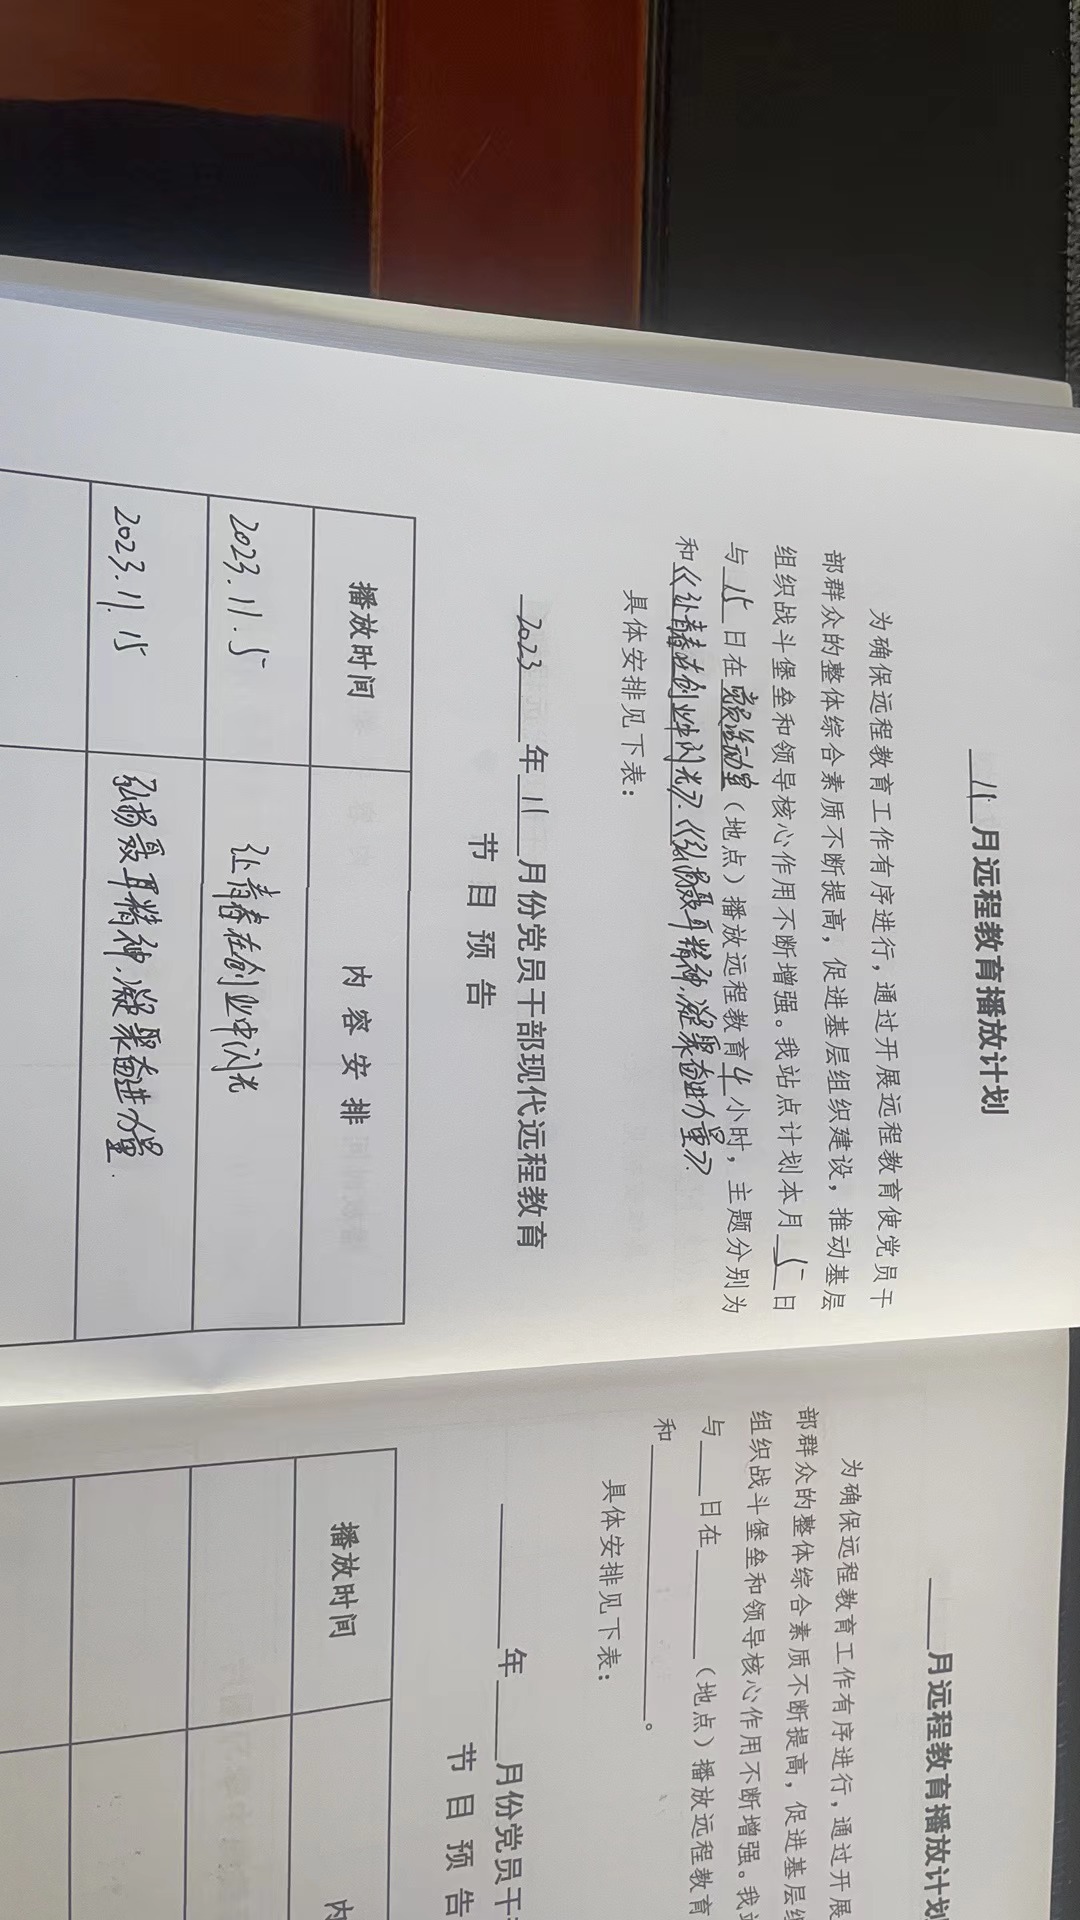 11月远程教育播放计划
为确保远程教育工作有序进行，通过开展远程教育使党员干
部群众的整体综合素质不断提高，促进基层组织建设，推动基层
组织战斗堡垒和领导核心作用不断增强。我站点计划本月5日
与15日在党员活动室（地点）播放远程教育4小时，主题分别为
和《让青春在创业中闪光》、《弘扬聂耳精神，凝聚奋进力量》
具体安排见下表：
2023年11月份党员干部现代远程教育
节目预告
播放时间 内容安排
2023.11.5 让青春在创业中闪光
2023.11.15 弘扬聂耳精神，凝聚奋进力量.
月远程教育播放计划
为确保远程教育工作有序进行，通过开展
部群众的整体综合素质不断提高，促进基层组
组织战斗堡垒和领导核心作用不断增强。我站
与____日在________（地点）播放远程教育
和________________。
具体安排见下表：
____年____月份党员干
节目预告
播放时间 内